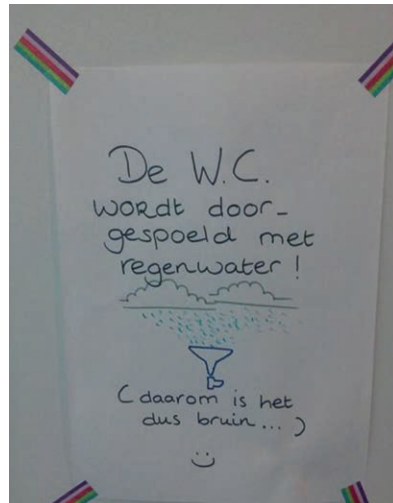 De W.C.
wordt door-
gespoeld met
regenwater!
(daarom is het
dus bruin...)